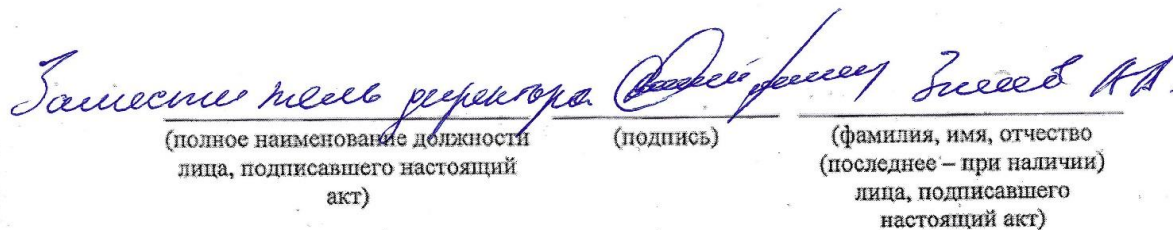 Заместитель директора
(полное наименование должности
лица, подписавшего настоящий
акт)
(подпись)
(фамилия, имя, отчество
(последнее – при наличии)
лица, подписавшего
настоящий акт)